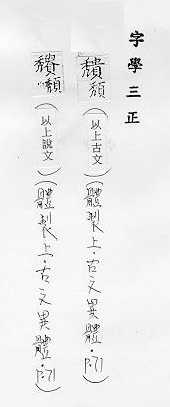 字學三正
(以上古文)(體製上·古文異體·P.71)
(以上說文)(體製上·古文異體·P.71)